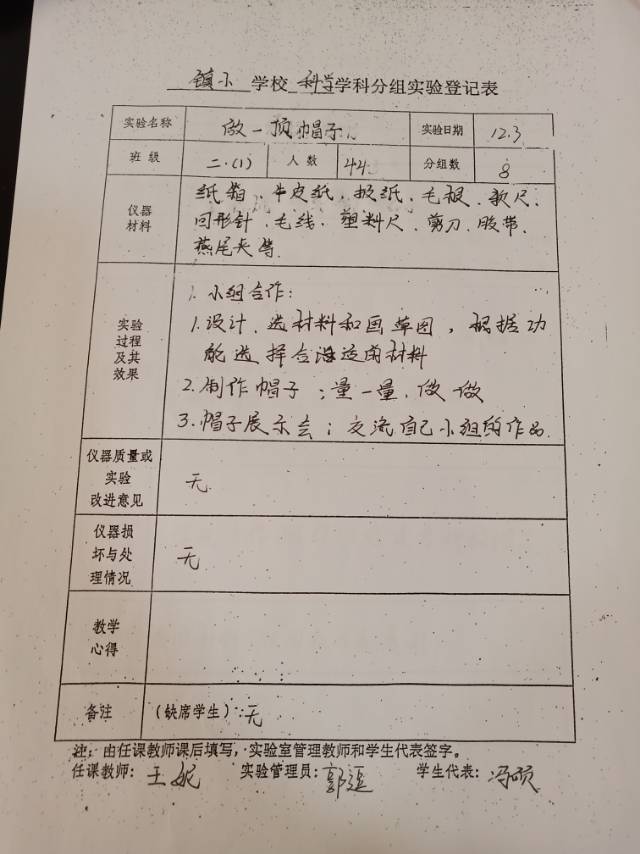 镇小 学校 科学学科分组实验登记表
实验名称 做一顶帽子 实验日期 12.3
班 级 二.(1) 人 数 44 分组数 8
仪器
材料
纸箱、牛皮纸、报纸、毛根、软尺、
回形针、毛线、塑料尺、剪刀、胶带、
燕尾夹等
实验
过程
及其
效果
1. 小组合作:
1.设计、选材料和画草图,根据功
能选择合适的材料
2.制作帽子:量一量,做做
3.帽子展示会;交流自己小组的作品
仪器质量或
实验
改进意见
无
仪器损
坏与处
理情况
无
教学
心得
备注 (缺席学生):无
注:由任课教师课后填写,实验室管理教师和学生代表签字。
任课教师:王妮 实验管理员:郭 学生代表:冯硕